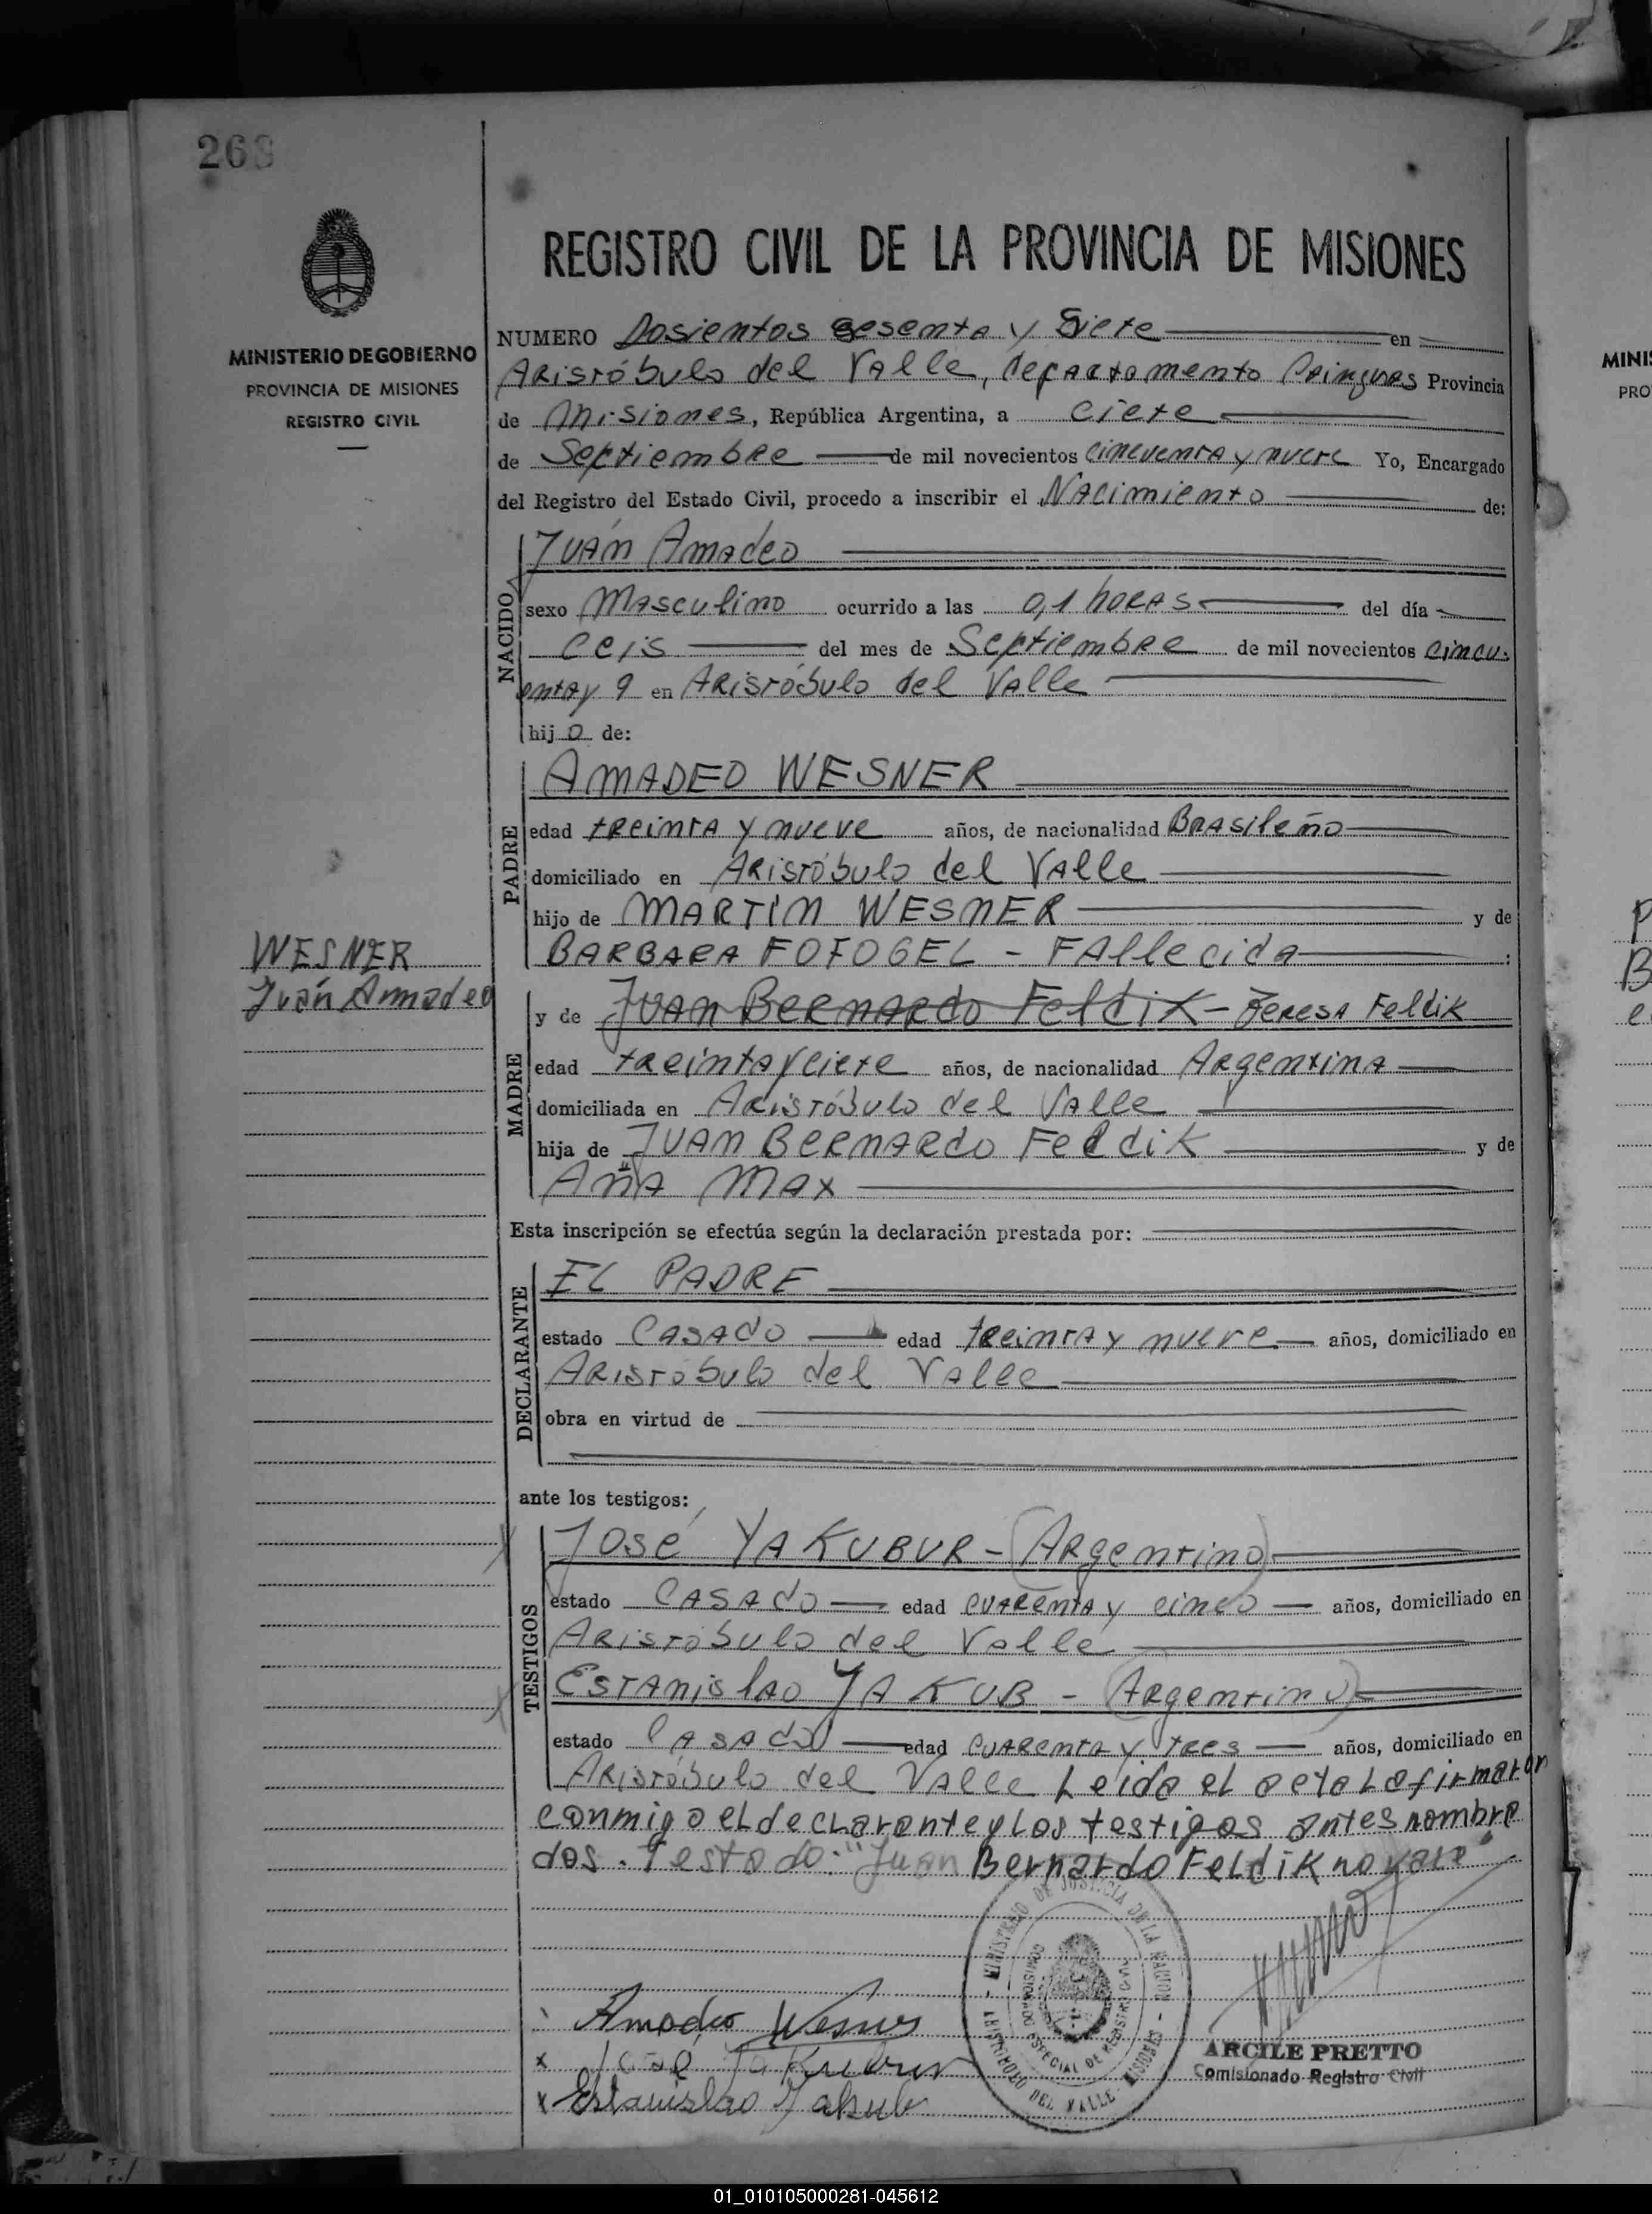 268
MINISTERIO DE GOBIERNO
PROVINCIA DE MISIONES
REGISTRO CIVIL
REGISTRO CIVIL DE LA PROVINCIA DE MISIONES
NUMERO Dosientos sesenta y Siete en
Aristóbulo del Valle, departamento Cainguas Provincia
de Misiones, República Argentina, a ciete
de Septiembre de mil novecientos cincuenta y nueve Yo, Encargado
del Registro del Estado Civil, procedo a inscribir el Nacimiento de:
NACIDO
Juán Amadeo
sexo Masculino ocurrido a las 0,1 horas del día
ceis del mes de Septiembre de mil novecientos cincu-
enta y 9 en Aristóbulo del Valle
hij o de:
PADRE
AMADEO WESNER
edad treinta y nueve años, de nacionalidad Brasileño
domiciliado en Aristóbulo del Valle
hijo de MARTIN WESNER y de
BARBARA FOFOGEL - FAllecida
WESNER
Juán Amadeo
MADRE
y de Juan Bernardo Feldik - Teresa Feldik
edad treinta y ciete años, de nacionalidad Argentina
domiciliada en Aristóbulo del Valle
hija de Juan Bernardo Feldik y de
Ana Max
Esta inscripción se efectúa según la declaración prestada por:
DECLARANTE
EL PADRE
estado Casado edad treinta y nueve años, domiciliado en
Aristóbulo del Valle
obra en virtud de
ante los testigos:
TESTIGOS
José YAKUBUR - (Argentino)
estado Casado edad cuarenta y cinco años, domiciliado en
Aristóbulo del Valle
Estanislao YAKUB - (Argentino)
estado Casado edad cuarenta y tres años, domiciliado en
Aristóbulo del Valle Leida el acta La firmaron
conmigo el declarante y Los testigos antes nombra
dos. Testado: "Juan Bernardo Feldik no vale"
MINISTERIO DE JUSTICIA DE LA NACION
COMISIONADO ESPECIAL DE REGISTRO CIVIL
ARISTOBULO DEL VALLE - MISIONES
Amadeo Wesner
x José Yakubur
x Estanislao Yakub
ARCILE PRETTO
Comisionado Registro Civil
MINIS
PRO
01_010105000281-045612